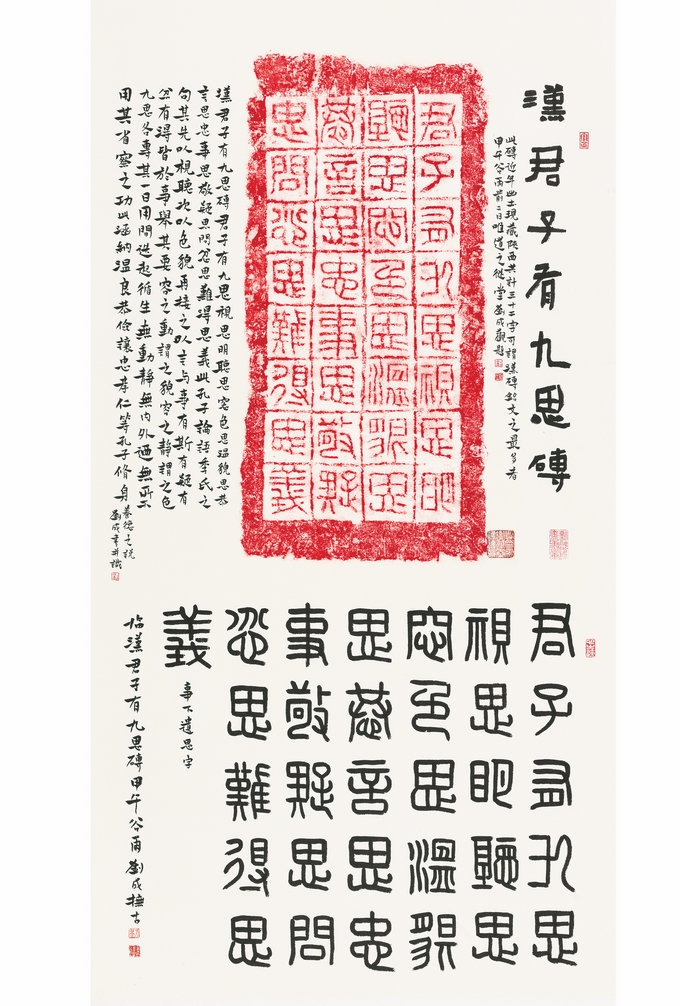 漢君子有九思磚
此磚近年出土現藏陝西共計三十二字可謂漢磚銘文之最多者
甲午谷雨前二日唯道之從堂劉成觀題
君子有九思視思明
聽思窓色思溫貌思
恭言思忠事思敬疑
思問忿思難得思義
漢君子有九思磚君子有九思視思明聽思窓色思溫貌思恭
言思忠事思敬疑思問忿思難得思義此孔子論語季氏之
句其先以視聽次以色貌再接之以言与事有斯有疑有
忿有得皆於事舉其要容之動謂之貌容之靜謂之色
九思各專其一日用間迭起循生無動靜無內外過無所不
用其省察之功此極納溫良恭儉讓忠孝仁等孔子修身
養德之說
劉成并識
君子有九思
視思明聽思
窓色思溫貌
思恭言思忠
事敬疑思問
忿思難得思
義
事下遺思字
臨漢君子有九思磚甲午谷雨劉成撫古